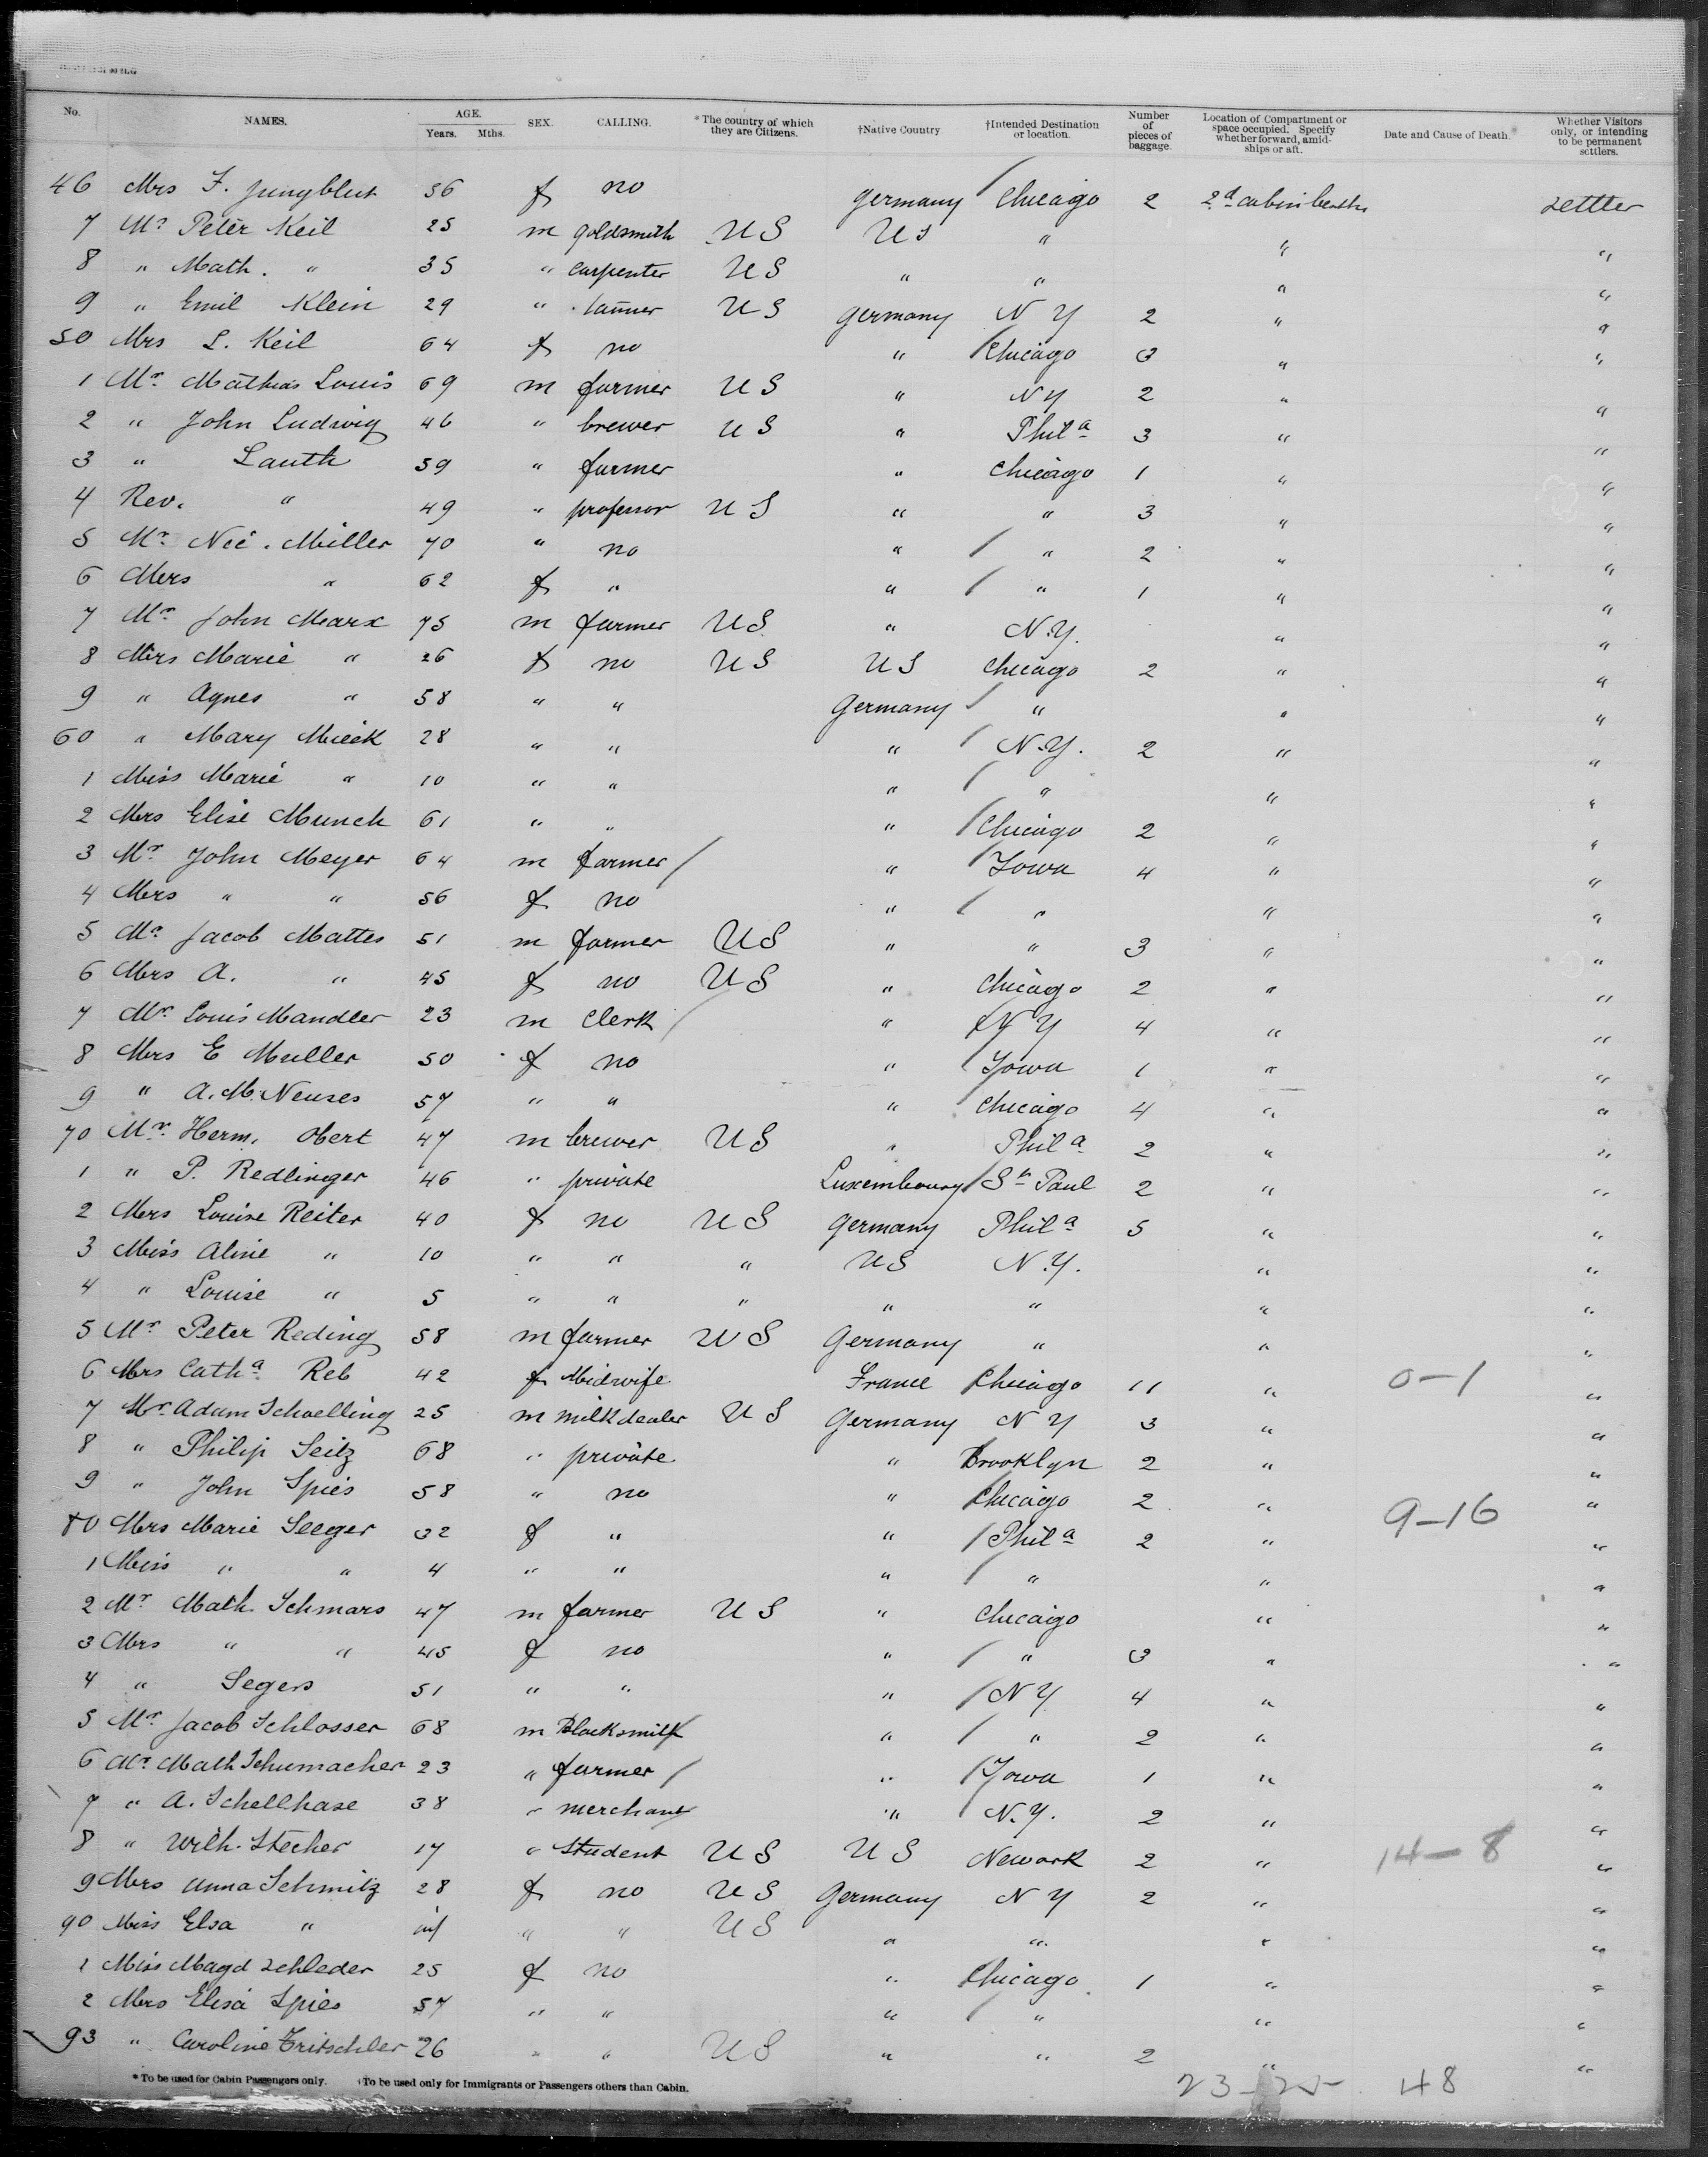 No. NAMES. AGE. Years. Mths. SEX. CALLING. *The country of which they are Citizens. †Native Country †Intended Destination or location. Number of pieces of baggage. Location of Compartment or space occupied. Specify whether forward, amidships or aft. Date and Cause of Death.* Whether Visitors only, or intending to be permanent settlers.
46 Mrs F. Jungblut 36 f no Germany / Chicago 2 2d cabin berths settler
7 Mr Peter Keil 25 m goldsmith US US " " "
8 " Math. " 35 " carpenter US " " " "
9 " Emil Klein 29 " tanner US Germany N Y 2 " "
50 Mrs L. Keil 64 f no " / Chicago 3 " "
1 Mr Mathias Louis 69 m farmer US " NY 2 " "
2 " John Ludwig 46 " brewer US " Phila 3 " "
3 " Lauth 59 " farmer " Chicago 1 " "
4 Rev. " 49 " professor US " " 3 " "
5 Mr Nic. Miller 70 " no " / " 2 " "
6 Mrs " 62 f " " / " 1 " "
7 Mr John Marx 75 m farmer US " N.Y. " "
8 Mrs Marie " 26 f no US US Chicago 2 " "
9 " Agnes " 58 " " Germany / " " "
60 " Mary Mieck 28 " " " / N.Y. 2 " "
1 Miss Marie " 10 " " " / " " "
2 Mrs Elise Munch 61 " " " / Chicago 2 " "
3 Mr John Meyer 64 m farmer / " / Iowa 4 " "
4 Mrs " " 56 f no " / " " "
5 Mr Jacob Mattes 51 m farmer US " " 3 " "
6 Mrs A. " 45 f no US " Chicago 2 " "
7 Mr Louis Mandler 23 m Clerk / " / N Y 4 " "
8 Mrs E Muller 50 f no " / Iowa 1 " "
9 " A.M. Neuses 57 " " " Chicago 4 " "
70 Mr Herm. Obert 47 m brewer US " Phila 2 " "
1 " P. Redlinger 46 " private Luxembourg / St Paul 2 " "
2 Mrs Louise Reiter 40 f no US Germany Phila 5 " "
3 Miss Aline " 10 " " " US N.Y. " "
4 " Louise " 5 " " " " " " "
5 Mr Peter Reding 58 m farmer US Germany " " "
6 Mrs Catha Reb 42 f Midwife France / Chicago 11 " 0-1 "
7 Mr Adam Schoelling 25 m milkdealer US Germany N Y 3 " "
8 " Philip Seitz 68 " private " Brooklyn 2 " "
9 " John Spies 58 " no " / Chicago 2 " "
80 Mrs Marie Seeger 32 f " " / Phila 2 " 9-16 "
1 Miss " " 4 " " " / " " "
2 Mr Math. Schmars 47 m farmer US " Chicago " "
3 Mrs " " 45 f no " / " 3 " "
4 " Segers 51 " " " / N Y 4 " "
5 Mr Jacob Schlosser 68 m Blacksmith " / " 2 " "
6 Mr Math Schumacher 23 " farmer / " / Iowa 1 " "
7 " A. Schellhase 38 " merchant " / N.Y. 2 " "
8 " Wilh. Stecher 17 " Student US US Newark 2 " 14-8 "
9 Mrs Anna Schmitz 28 f no US Germany N Y 2 " "
90 Miss Elsa " inf " " US " " " "
1 Miss Magd Schleder 25 f no " / Chicago 1 " "
2 Mrs Elisa Spies 57 " " " / " " "
93 " Caroline Tritschler 26 " " US " " 2 " "
*To be used for Cabin Passengers only. †To be used only for Immigrants or Passengers others than Cabin.
23-25 48